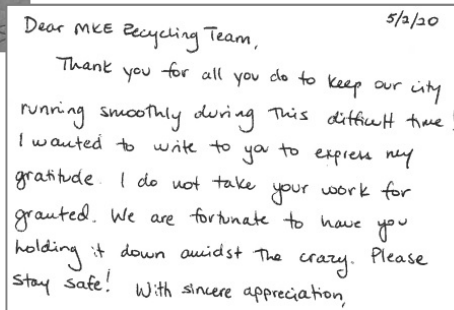 5/2/20
Dear MKE Recycling Team,
Thank you for all you do to keep our city
running smoothly during this difficult time!
I wanted to write to you to express my
gratitude. I do not take your work for
granted. We are fortunate to have you
holding it down amidst the crazy. Please
stay safe! With sincere appreciation,